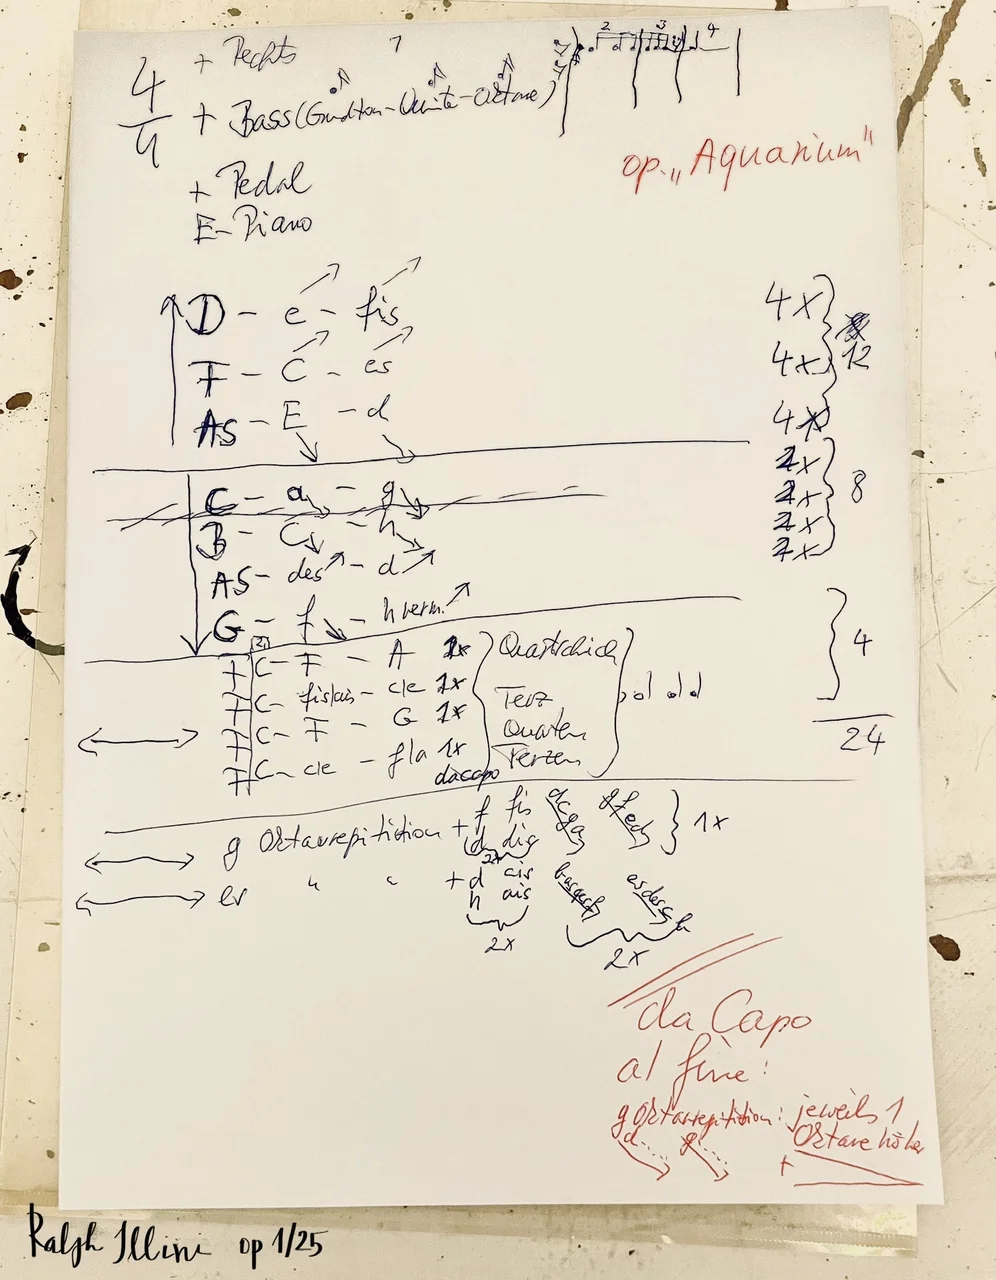 4/4
+ Rechts 1
2 3 4
+ Bass (Grundton-Quinte-Oktave)
op. „Aquarium"
+ Pedal
E-Piano
D - e - fis 4x
F - C - es 4x 12
AS - E - d 4x
C - a - g 2x
B - C - h 2x 8
AS - des - d 2x
G - f - h verm. 2x
F C - F - A 1x Quartschich
F C - fis/ais - cle 1x Terz 4
F C - F - G 1x Quarten
F C - cle - f/a 1x Terzen
dacapo
24
g Oktavrepitition + f fis dcga gfed 1x
d dis
2x
es " " + d cis
h ais
2x 2x
da Capo
al fine:
g Oktavrepitition: jeweils 1
d g Oktave höher
+
Ralph Illini op 1/25